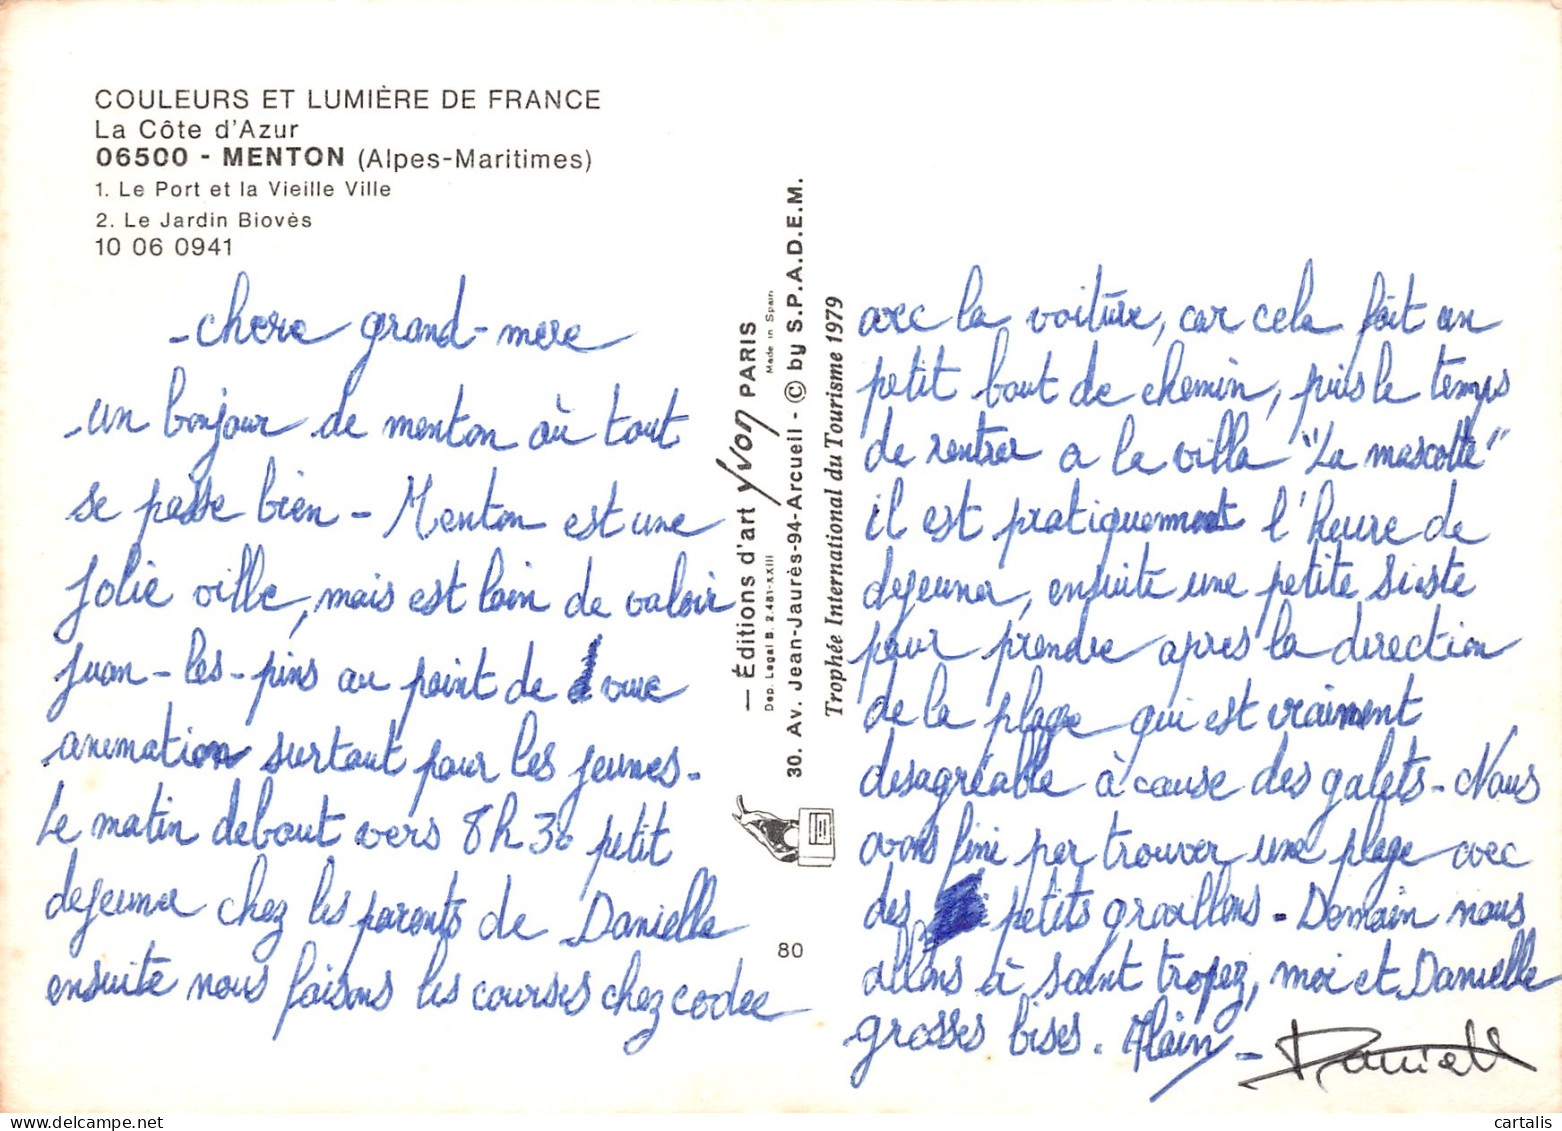 COULEURS ET LUMIÈRE DE FRANCE
La Côte d'Azur
06500 - MENTON (Alpes-Maritimes)
1. Le Port et la Vieille Ville
2. Le Jardin Biovès
10 06 0941
- chere grand-mere
un bonjour de menton où tout
se passe bien - Menton est une
jolie ville, mais est loin de valoir
juan-les-pins au point de vue
animation surtout pour les jeunes.
Le matin debout vers 8h30 petit
dejeuner chez les parents de Danielle
ensuite nous faisons les courses chez codec
— Éditions d'art yvon PARIS
Dep. Legal B. 2.481-XXIII
Made in Spain
30. Av. Jean-Jaurès-94-Arcueil - © by S.P.A.D.E.M.
Trophée International du Tourisme 1979
80
avec la voiture, car cela fait un
petit bout de chemin, puis le temps
de rentrer a la villa "La mascotte"
il est pratiquement l'heure de
dejeuner, ensuite une petite sieste
pour prendre apres la direction
de la plage qui est vraiment
desagréable à cause des galets - Nous
avons fini par trouver une plage avec
des petits gravillons - Demain nous
allons à saint tropez, moi et Danielle
grosses bises. Alain -
Danielle
cartalis